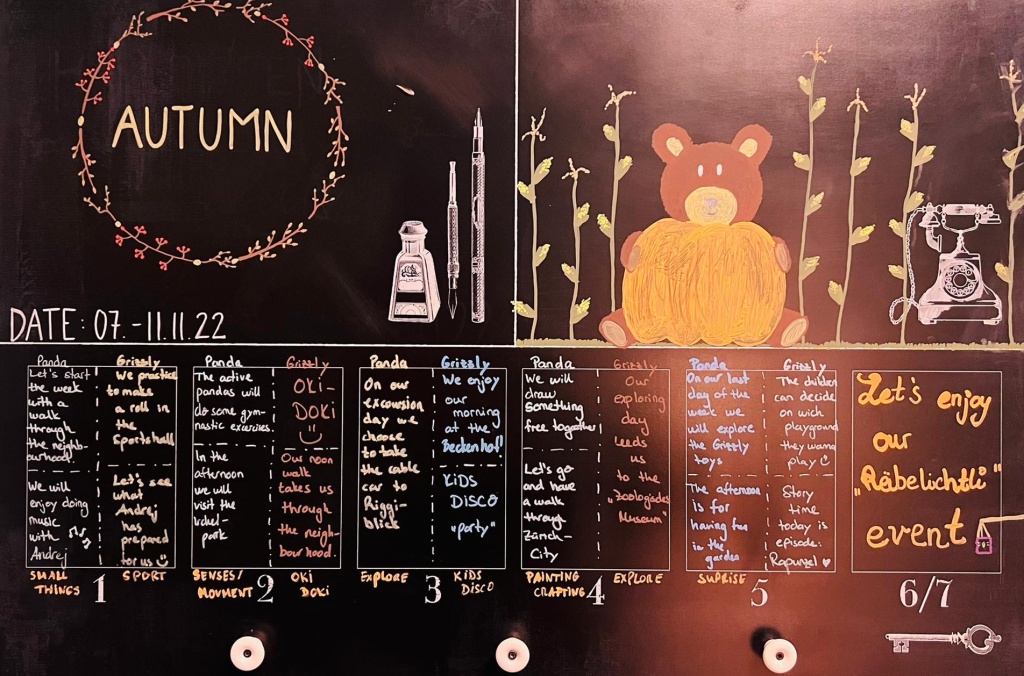 AUTUMN
DATE: 07.-11.11.22
Panda
Let's start
the week
with a
walk
through
the neighb-
ourhood!
We will
enjoy doing
music
with
Andrej
Grizzly
We practice
to make
a roll in
the
Sportshall
Let's see
what
Andrej
has
prepared
for us
SMALL
THINGS
1
SPORT
Panda
The active
pandas will
do some gym-
nastic exercises.
In the
afternoon
we will
visit the
park
Grizzly
OKI-
DOKI
Our noon
walk
takes us
through
the neigh-
bourhood.
SENSES/
MOVMENT
2
OKI
DOKI
Panda
On our
excursion
day we
choose
to take
the cable
car to
Riggi-
blick
Grizzly
We enjoy
our
morning
at the
Beckenhof!
KiDS
DISCO
"party"
EXPLORE
3
KiDS
DiSCO
Panda
We will
draw
something
free together!
Let's go
and have
a walk
through
Zürich-
City
Grizzly
Our
exploring
day
leeds
us
to the
"Zoologisches
Museum"
PAINTING
CRAFTING
4
EXPLORE
Panda
On our last
day of the
week we
will explore
the Grizzly
toys
The afternoon
is for
having fun
in the
garden
Grizzly
The children
can decide
on wich
playground
they wanna
play
Story
time
today is
episode:
Rapunzel ♥
SUPRISE
5
Let's enjoy
our
"Räbeliechtli"
event
6/7